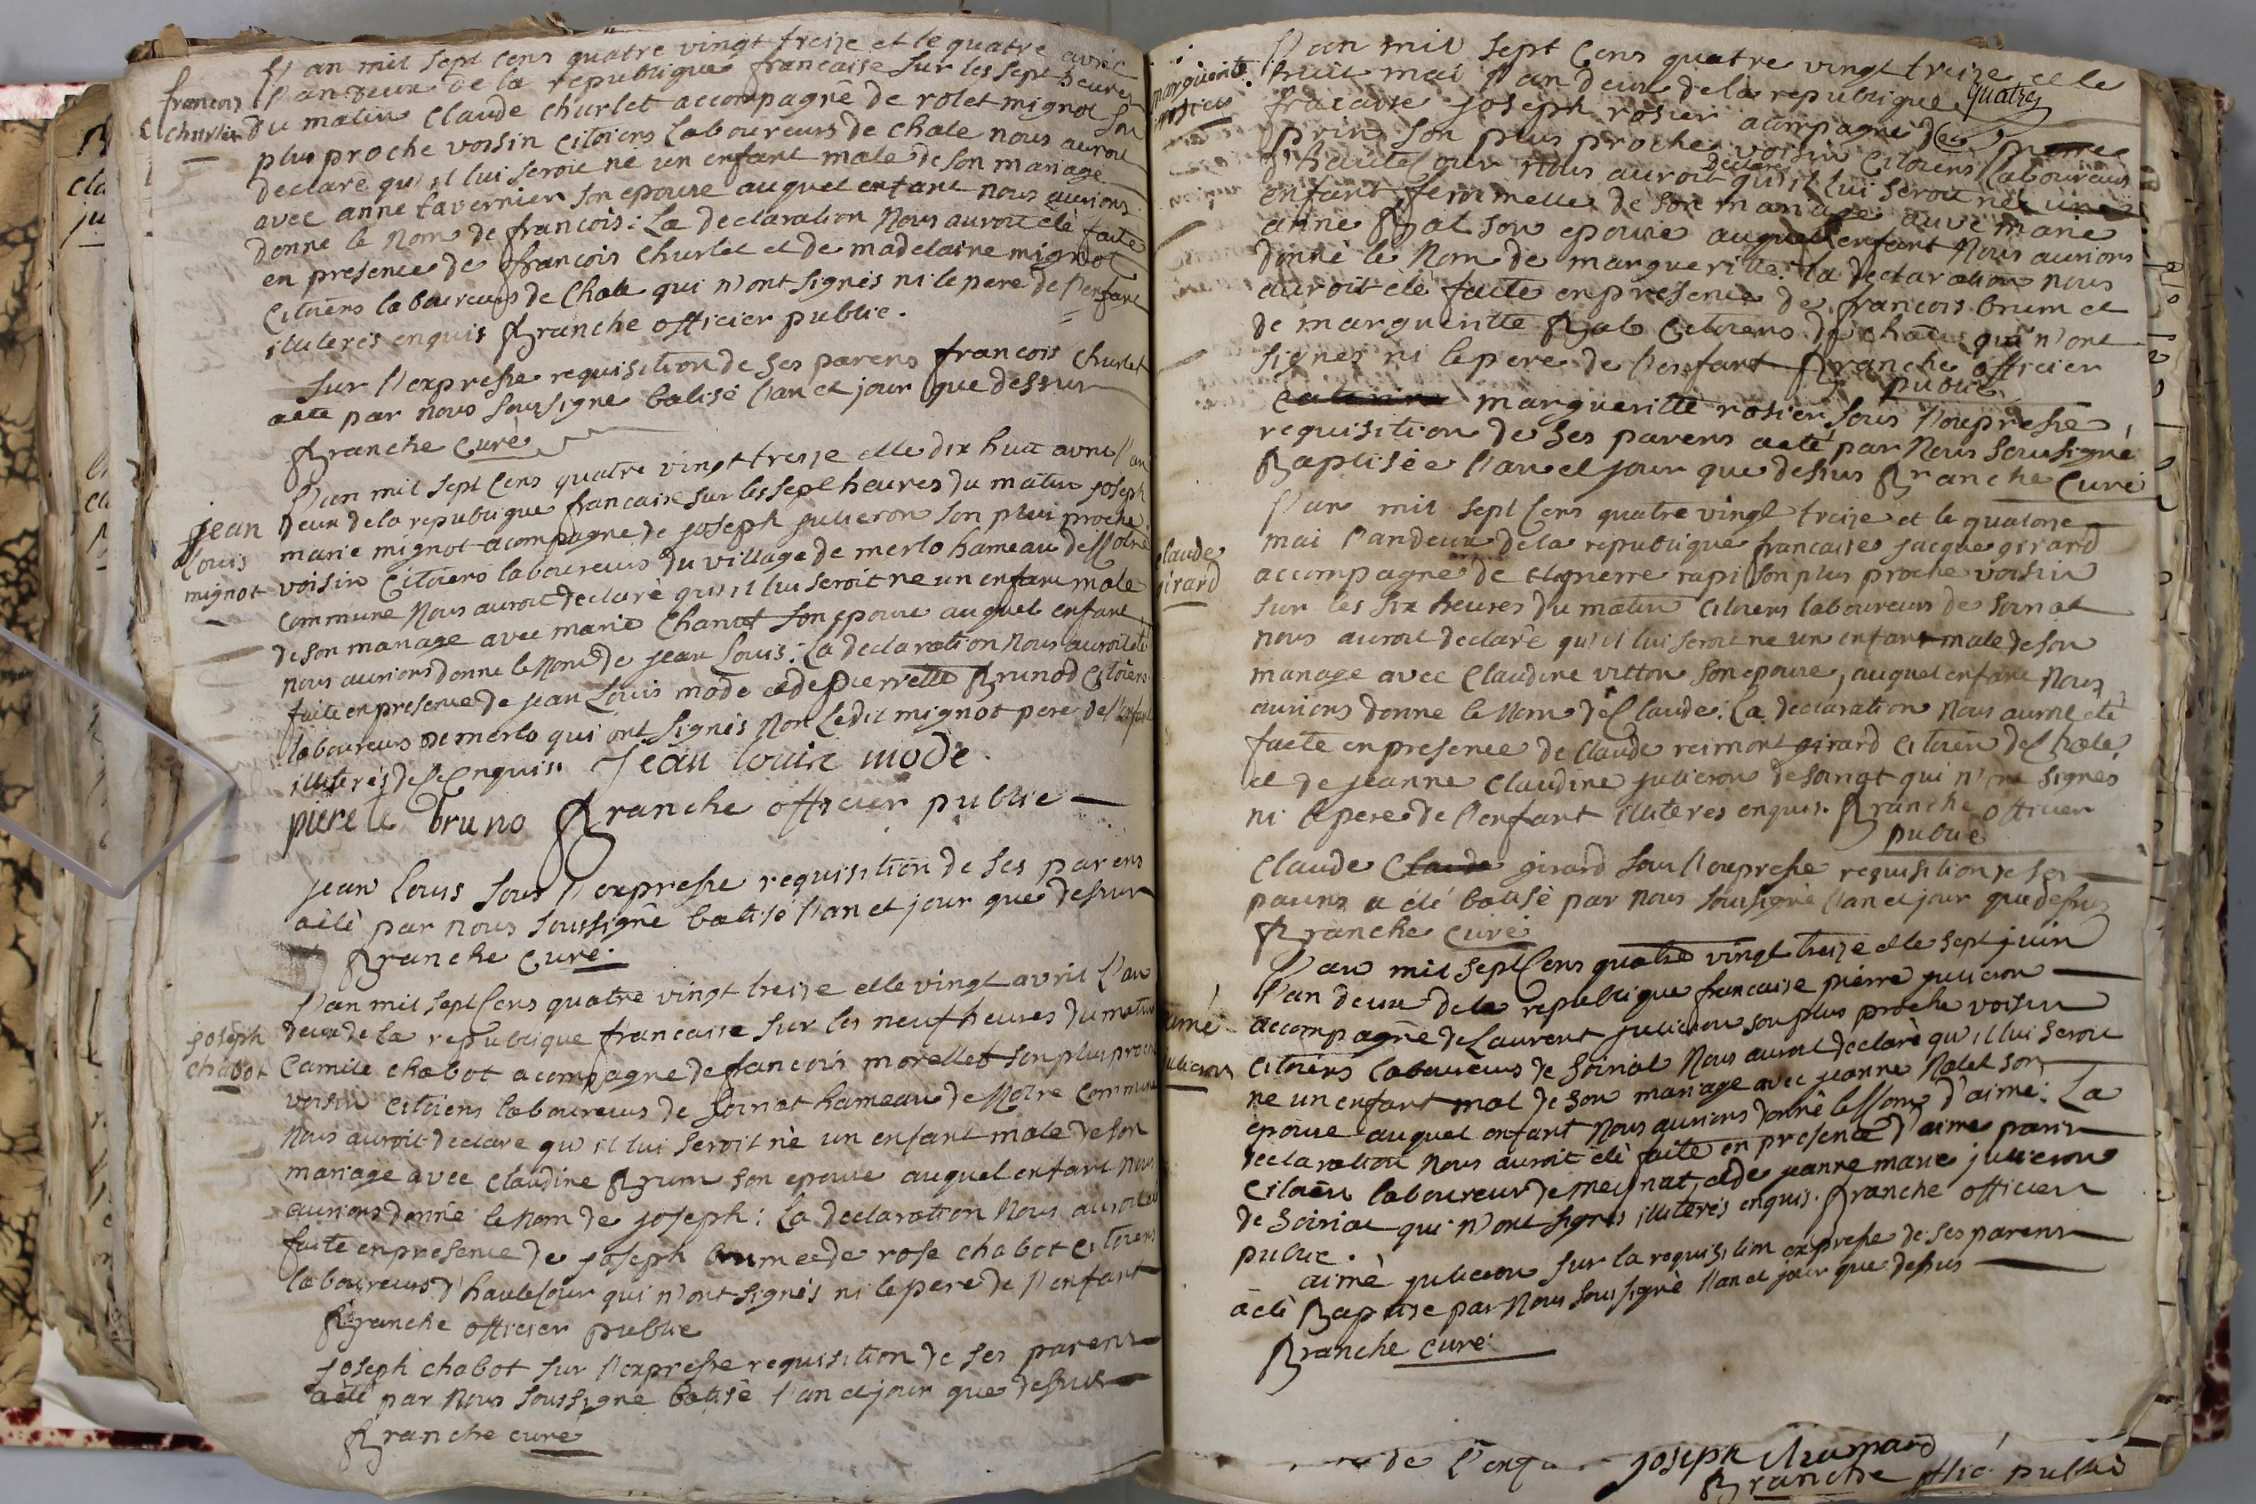 francois
churlet
L'an mil sept cens quatre vingt treize et le quatre avril
l'an deux de la republique francaise sur les sept heures
du matin claude churlet accompagné de rolet mignot son
plus proche voisin citoiens laboureurs de chale nous auroit
declaré qu'il lui seroit né un enfant male de son mariage
avec anne tavernier son epouse auquel enfant nous aurions
donne le nom de francois: La declaration nous auroit été faite
en presence de francois churlet et de madelaine mignot
citoiens laboureurs de Chale qui n'ont signés ni le pere de l'enfant
illiterés enquis Branche officier public.
sur l'expresse requisition de ses parens francois churlet
a eté par nous soussigné batisé l'an et jour que dessus
Branche curé
jean
Louis
mignot
L'an mil sept cens quatre vingt treize et le dix huit avril l'an
deux de la republique francaise sur les sept heures du matin joseph
marie mignot acompagne de joseph julieron son plus proche
voisin citoiens laboureurs du village de merlo hameau de Notre
commune nous auroit declaré qu'il lui seroit ne un enfant male
de son mariage avec marie Chanot son epouse auquel enfant
nous aurions donne le nom de jean Louis: La declaration nous auroit eté
faite en presence de jean Louis mode et de pierrette Brunod citoiens
laboureurs de merlo qui ont signés non Ledit mignot pere de l'enfant
illiterés de ce enquis Jean Louis mode
pierete bruno Branche officier public
jean Louis sous l'expresse requisition de ses parens
a eté par nous soussigné batisé l'an et jour que dessus
Branche curé.
joseph
chabot
L'an mil sept cens quatre vingt treize et le vingt avril L'an
deux de la republique francaise sur les neuf heures du matin
Camile chabot acompagne de francois morellet son plus proche
voisin citoiens laboureurs de soinat hameau de Notre commune
nous auroit declare qu'il lui seroit né un enfant male de son
mariage avec claudine Brum son epouse auquel enfant nous
aurions donné le nom de joseph: La declaration nous auroit eté
faite en presence de joseph brum et de rose chabot citoiens
laboureurs d'hautecour qui n'ont signés ni le pere de l'enfant
Branche officier public
joseph chabot sur l'expresse requisition de ses parens
a eté par nous soussigné batisé l'an et jour que dessus
Branche curé
marguerite
rosier
L'an mil sept cens quatre vingt treize et le
huit mai l'an deux de la republique
quatre
fracaise joseph rosier acompagné de
prin son plus proche voisin citoiens laboureurs
d'hautecour nous auroit declaré qu'il lui seroit né une
enfant femmelle de son mariage avec marie
anne Bal son epouse auquel enfant nous aurions
donné le nom de margueritte: la declaration nous
auroit eté faite en presence de francois brum et
de margueritte Bal citoiens de chale qui n'ont
signés ni le pere de l'enfant Branche officier
public
margueritte rosier sous l'expresse
requisition de ses parens a eté par nous soussigné
Baptisée l'an et jour que dessus Branche curé
claude
girard
L'an mil sept cens quatre vingt treize et le quatorze
mai l'an deux de la republique francaise jacque girard
accompagné de rapi son plus proche voisin
sur les six heures du matin citoiens laboureurs de soinat
nous auroit declaré qu'il lui seroit ne un enfant male de son
mariage avec claudine vitton son epouse, auquel enfant nous
aurions donne le nom de Claude: La declaration nous auroit eté
faite en presence de claude reimont girard citoien de Chale
et de jeanne claudine julieron de soinat qui n'ont signés
ni le pere de l'enfant illiteres enquis. Branche officier
public
claude Claude girard sous l'expresse requisition de ses
parens a eté batisé par nous soussigné l'an et jour que dessus
Branche curé
aimé
julieron
L'an mil sept cens quatre vingt treize et le sept juin
l'an deux de la republique francaise pierre julieron
accompagné de Laurent julieron son plus proche voisin
citoiens laboureurs de soinat nous auroit declaré qu'il lui seroit
ne un enfant mal de son mariage avec jeanne Nalet son
epouse auquel enfant nous aurions donné le Nom d'aimé: La
declaration nous auroit eté faite en presence d'aime
citoien laboureur de et de jeanne marie julieron
de soiriat qui n'ont signés illiterés enquis. Branche officier
public.
aimé julieron sur la requisition expresse de ses parens
a eté Baptise par nous soussigné l'an et jour que dessus
Branche curé.
de l'enq
joseph
Branche offic. public